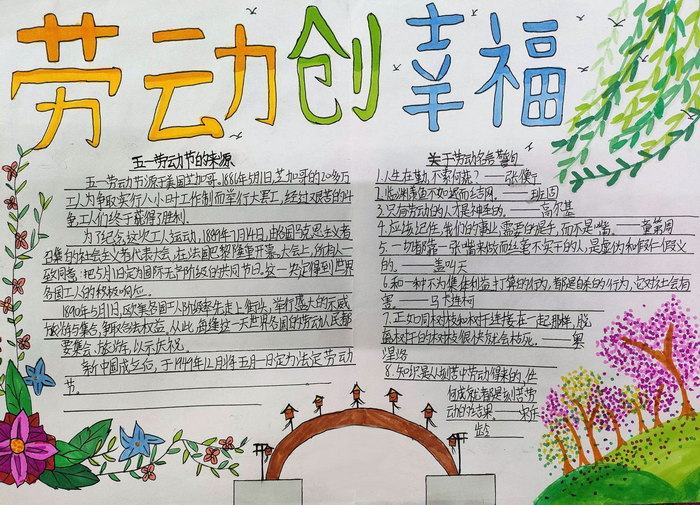 劳动创幸福
五一劳动节的来源
五一劳动节源于美国芝加哥。1886年5月1日,芝加哥的20多万
工人为争取实行八小时工作制而举行大罢工,经过艰苦的斗
争,工人们终于获得了胜利。
为了纪念这次工人运动,1889年7月14日,由各国马克思主义者
召集的社会主义者代表大会,在法国巴黎隆重开幕。大会上,所有人一
致同意:把5月1日定为国际无产阶级的共同节日。这一决定得到世界
各国工人的积极响应。
1890年5月1日,欧美各国工人阶级率先走上街头,举行盛大的示威
游行与集会,争取合法权益。从此,每逢这一天世界各国的劳动人民都
要集会、游行,以示庆祝
新中国成立后,于1949年12月将五月一日定为法定劳动
节。
关于劳动名言警句
1.人生在勤,不索何获?——张衡
2.临渊羡鱼不如退而结网。——班固
3.只有劳动的人才是神圣的。——高尔基
4.应该记住,我们的事业,需要的是手,而不是嘴。——童第周
5.一切都靠一张嘴来做而丝毫不实干的人,是虚伪和假仁假义
的。——盖叫天
6.和一种不为集体利益打算的行为,都是自杀的行为,它对社会有
害——马卡连柯
7.正如同树枝和树干连接在一起那样,脱
离树干的树枝很快就会枯死。——奥
涅格
8.知识是从刻苦中劳动得来的,任
何成就都是刻苦劳
动的结果。——宋庆
龄